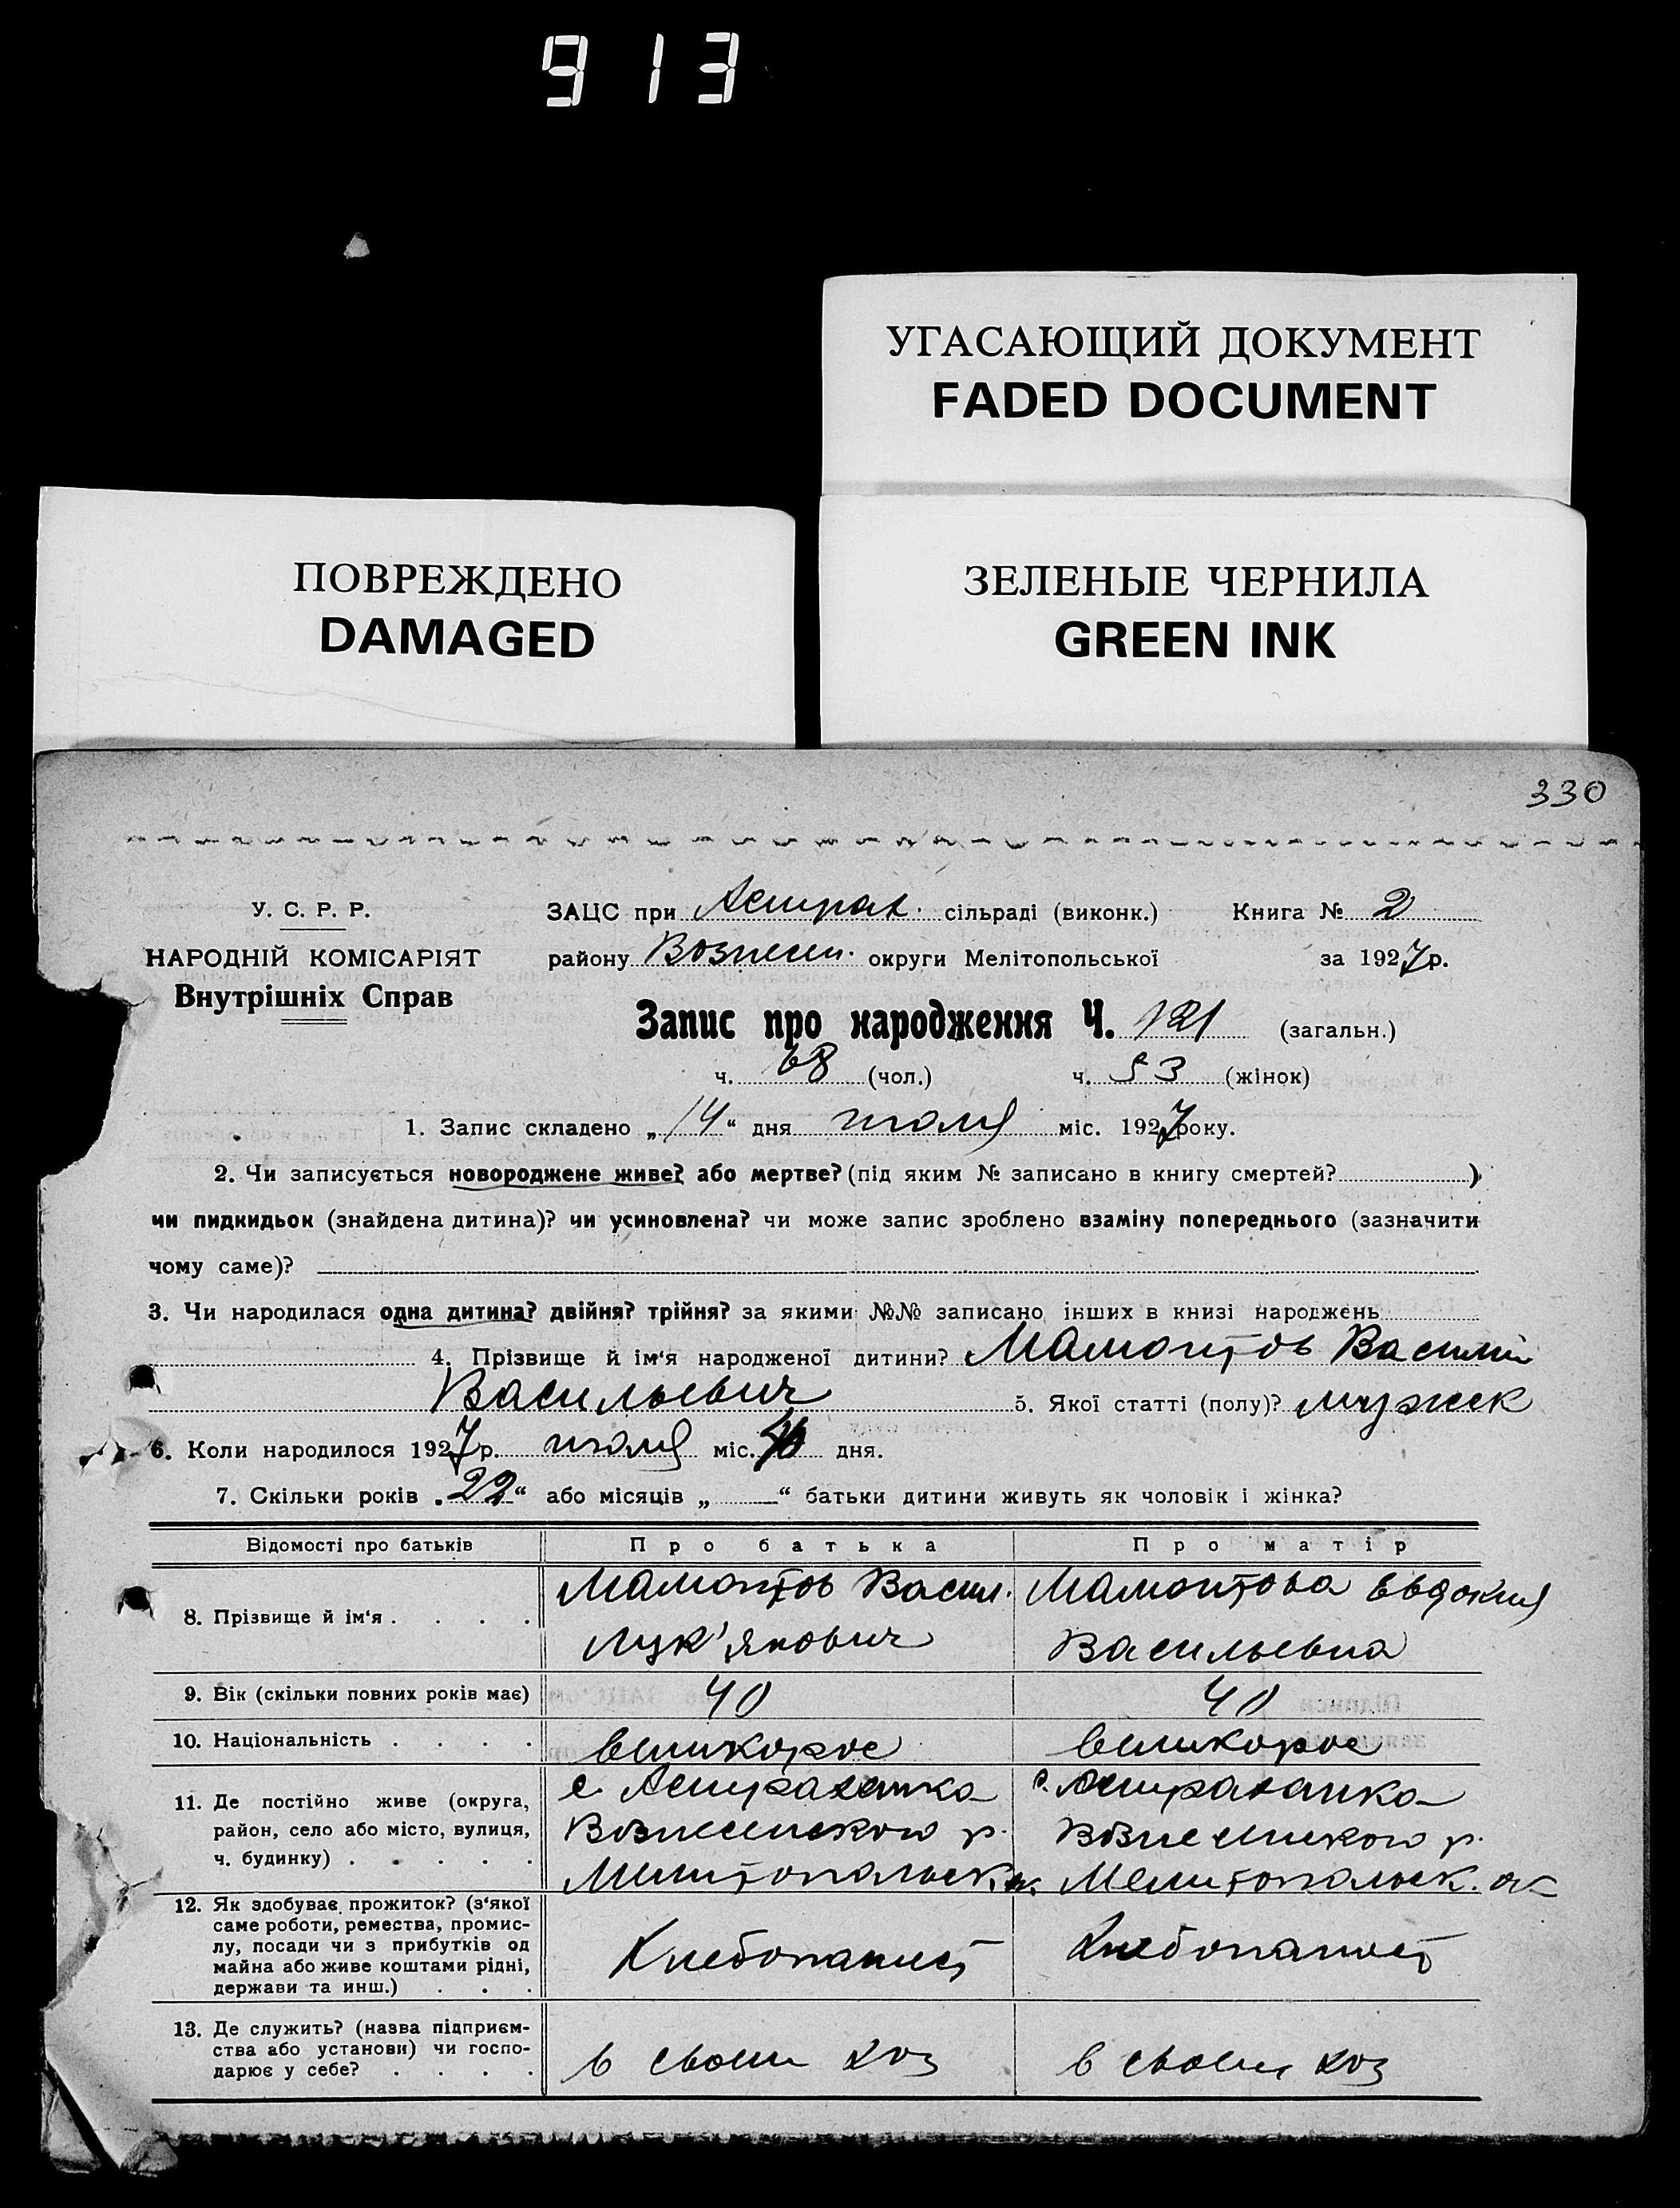 913
УГАСАЮЩИЙ ДОКУМЕНТ
FADED DOCUMENT
ПОВРЕЖДЕНО
DAMAGED
ЗЕЛЕНЫЕ ЧЕРНИЛА
GREEN INK
330
У. С. Р. Р.
НАРОДНІЙ КОМІСАРІЯТ
Внутрішніх Справ
ЗАЦС при Астрах. сільраді (виконк.) Книга № 2
району Вознесен. округи Мелітопольської за 1927 р.
Запис про народження Ч. 121 (загальн.)
ч. 68 (чол.) ч. 53 (жінок)
1. Запис складено „14“ дня июля міс. 1927 року.
2. Чи записується новороджене живе? або мертве? (під яким № записано в книгу смертей? )
чи пидкидьок (знайдена дитина)? чи усиновлена? чи може запис зроблено взаміну попереднього (зазначити
чому саме)?
3. Чи народилася одна дитина? двійня? трійня? за якими №№ записано інших в книзі народжень
4. Прізвище й ім‘я народженої дитини? Мамонтов Василий
Васильевич 5. Якої статті (полу)? мужск
6. Коли народилося 1927 р. июля міс. дня.
7. Скільки років „22“ або місяців „ “ батьки дитини живуть як чоловік і жінка?
Відомості про батьків Про батька Про матір
8. Прізвище й ім‘я . . . .
Мамонтов Васил.
Лук'янович
Мамонтова Евдокия
Васильевна
9. Вік (скільки повних років має) 40 40
10. Національність . . . . великорос великорос
11. Де постійно живе (округа,
район, село або місто, вулиця,
ч. будинку) . . . . .
с. Астраханка
Вознесенского р.
Мелитопольск. ок.
с. Астраханка
Вознесенского р.
Мелитопольск. ок
12. Як здобуває прожиток? (з‘якої
саме роботи, ремества, промис-
лу, посади чи з прибутків од
майна або живе коштами рідні,
держави та инш.) . . .
Хлебопашест
Хлебопашест
13. Де служить? (назва підприєм-
ства або установи) чи госпо-
дарює у себе? . . . .
в своем хоз
в своем хоз